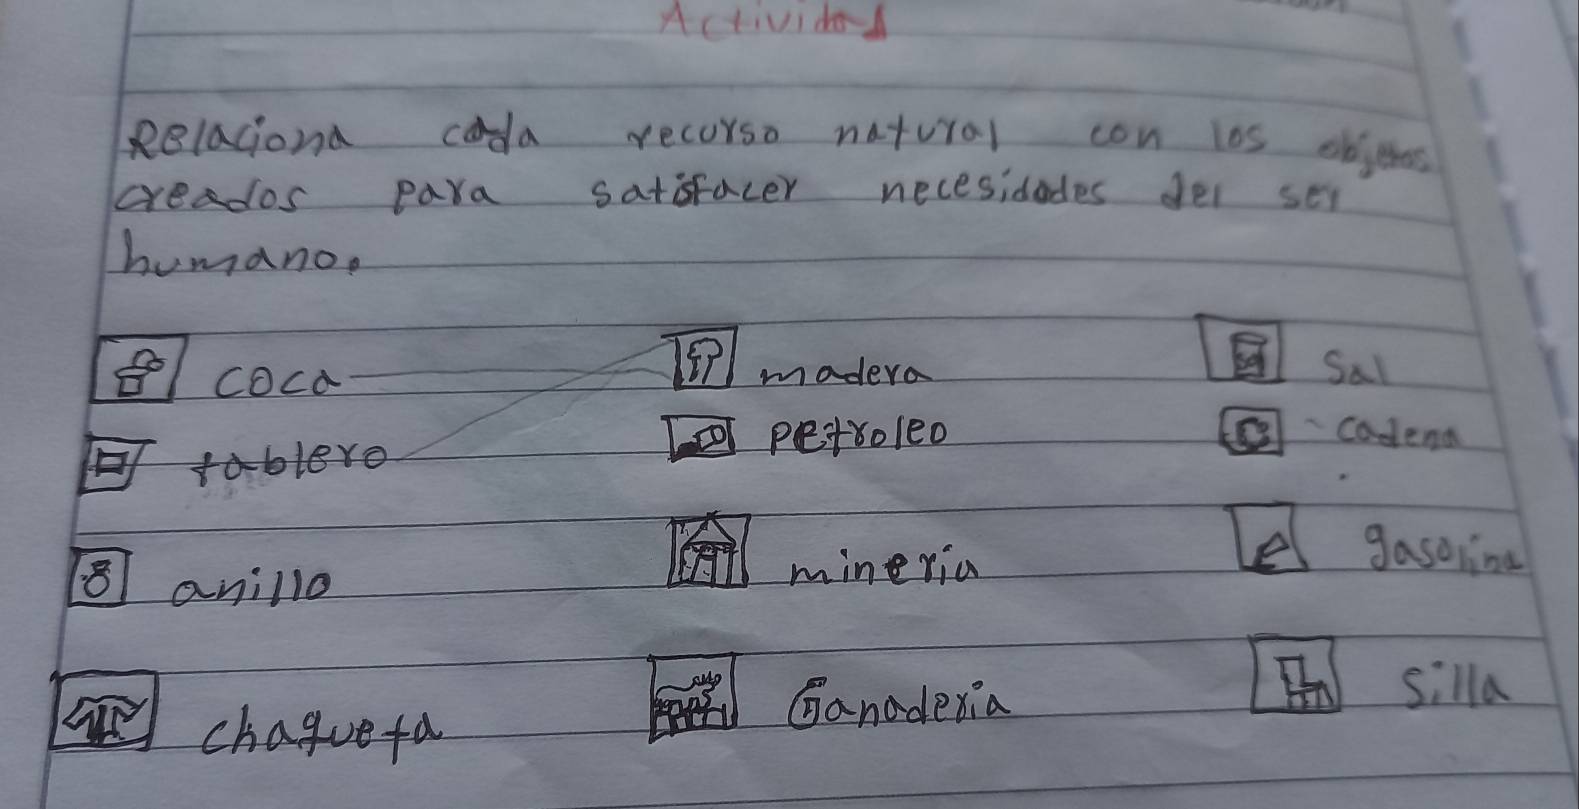 Actividad
Relaciona cada recurso natural con los objetos
creados para satisfacer necesidades del ser
humano.
coca madera sal
tablero petroleo cadena
anillo mineria gasolina
chaqueta Ganaderia silla